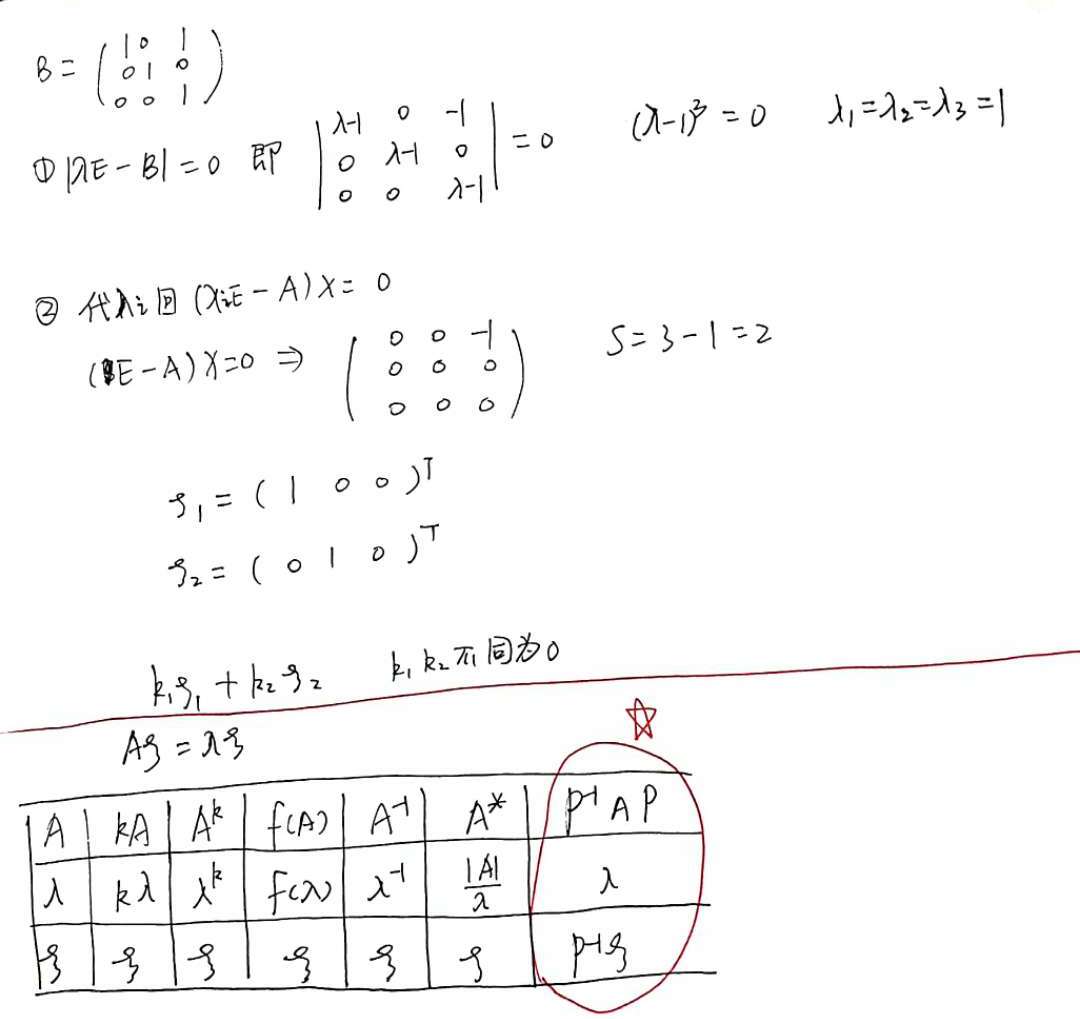 B = ( 1 0 1
0 1 0
0 0 1 )
① |λE - B| = 0 即 | λ-1 0 -1
0 λ-1 0
0 0 λ-1 | = 0 (λ-1)³ = 0 λ₁=λ₂=λ₃=1
② 代λi回 (λiE - A)X = 0
(1E - A)X=0 ⇒ ( 0 0 -1
0 0 0
0 0 0 ) S = 3 - 1 = 2
ξ₁ = ( 1 0 0 )ᵀ
ξ₂ = ( 0 1 0 )ᵀ
k₁ξ₁ + k₂ξ₂ k₁ k₂ 不同为0
Aξ = λξ
A kA Aᵏ f(A) A⁻¹ A* P⁻¹AP
λ kλ λᵏ f(λ) λ⁻¹ |A|/λ λ
ξ ξ ξ ξ ξ ξ P⁻¹ξ